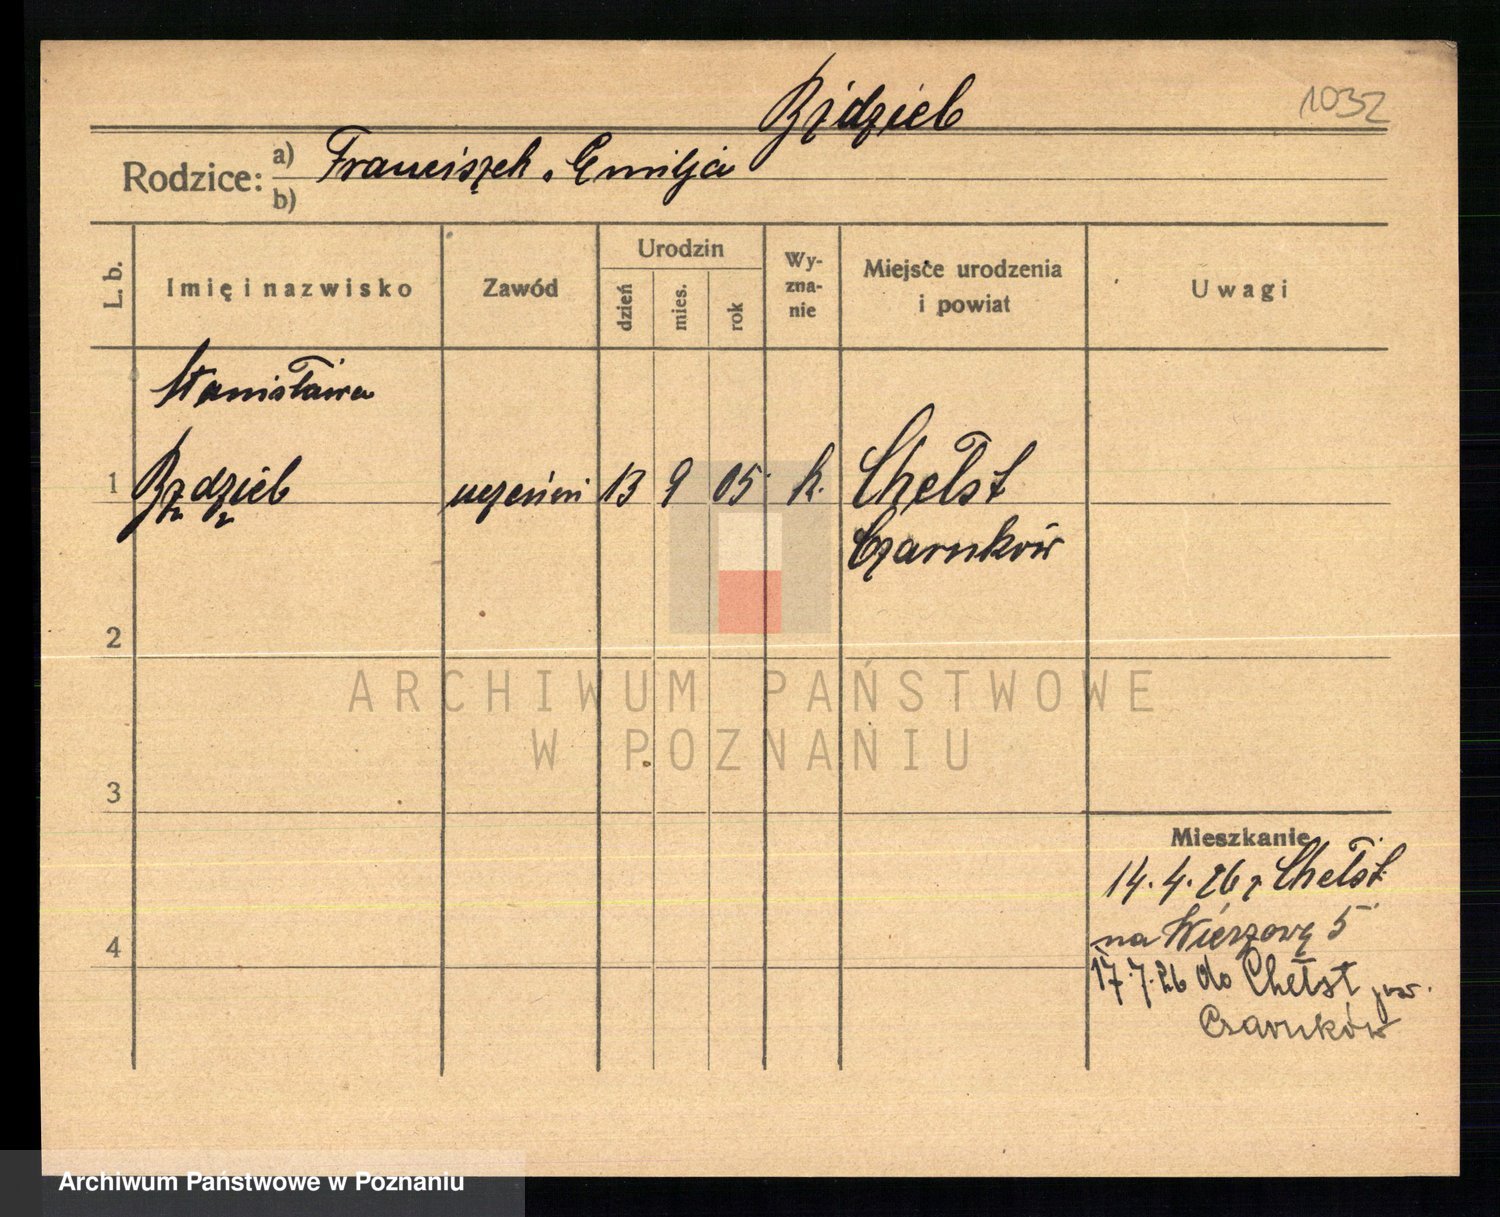 Bądzieb
1032
Rodzice:
a) Franciszek, Emilja
b)
L. b.
Imię i nazwisko
Zawód
Urodzin
dzień
mies.
rok
Wy-
zna-
nie
Miejsce urodzenia
i powiat
Uwagi
Stanisława
1 Bądzieb 13 9 05 k. Chełst
Czarnków
2
ARCHIWUM PAŃSTWOWE
W POZNANIU
3
Mieszkanie
14.4.26 z Chełst
na Wierzową 5
4
17.7.26 do Chełst pow.
Czarnków
Archiwum Państwowe w Poznaniu